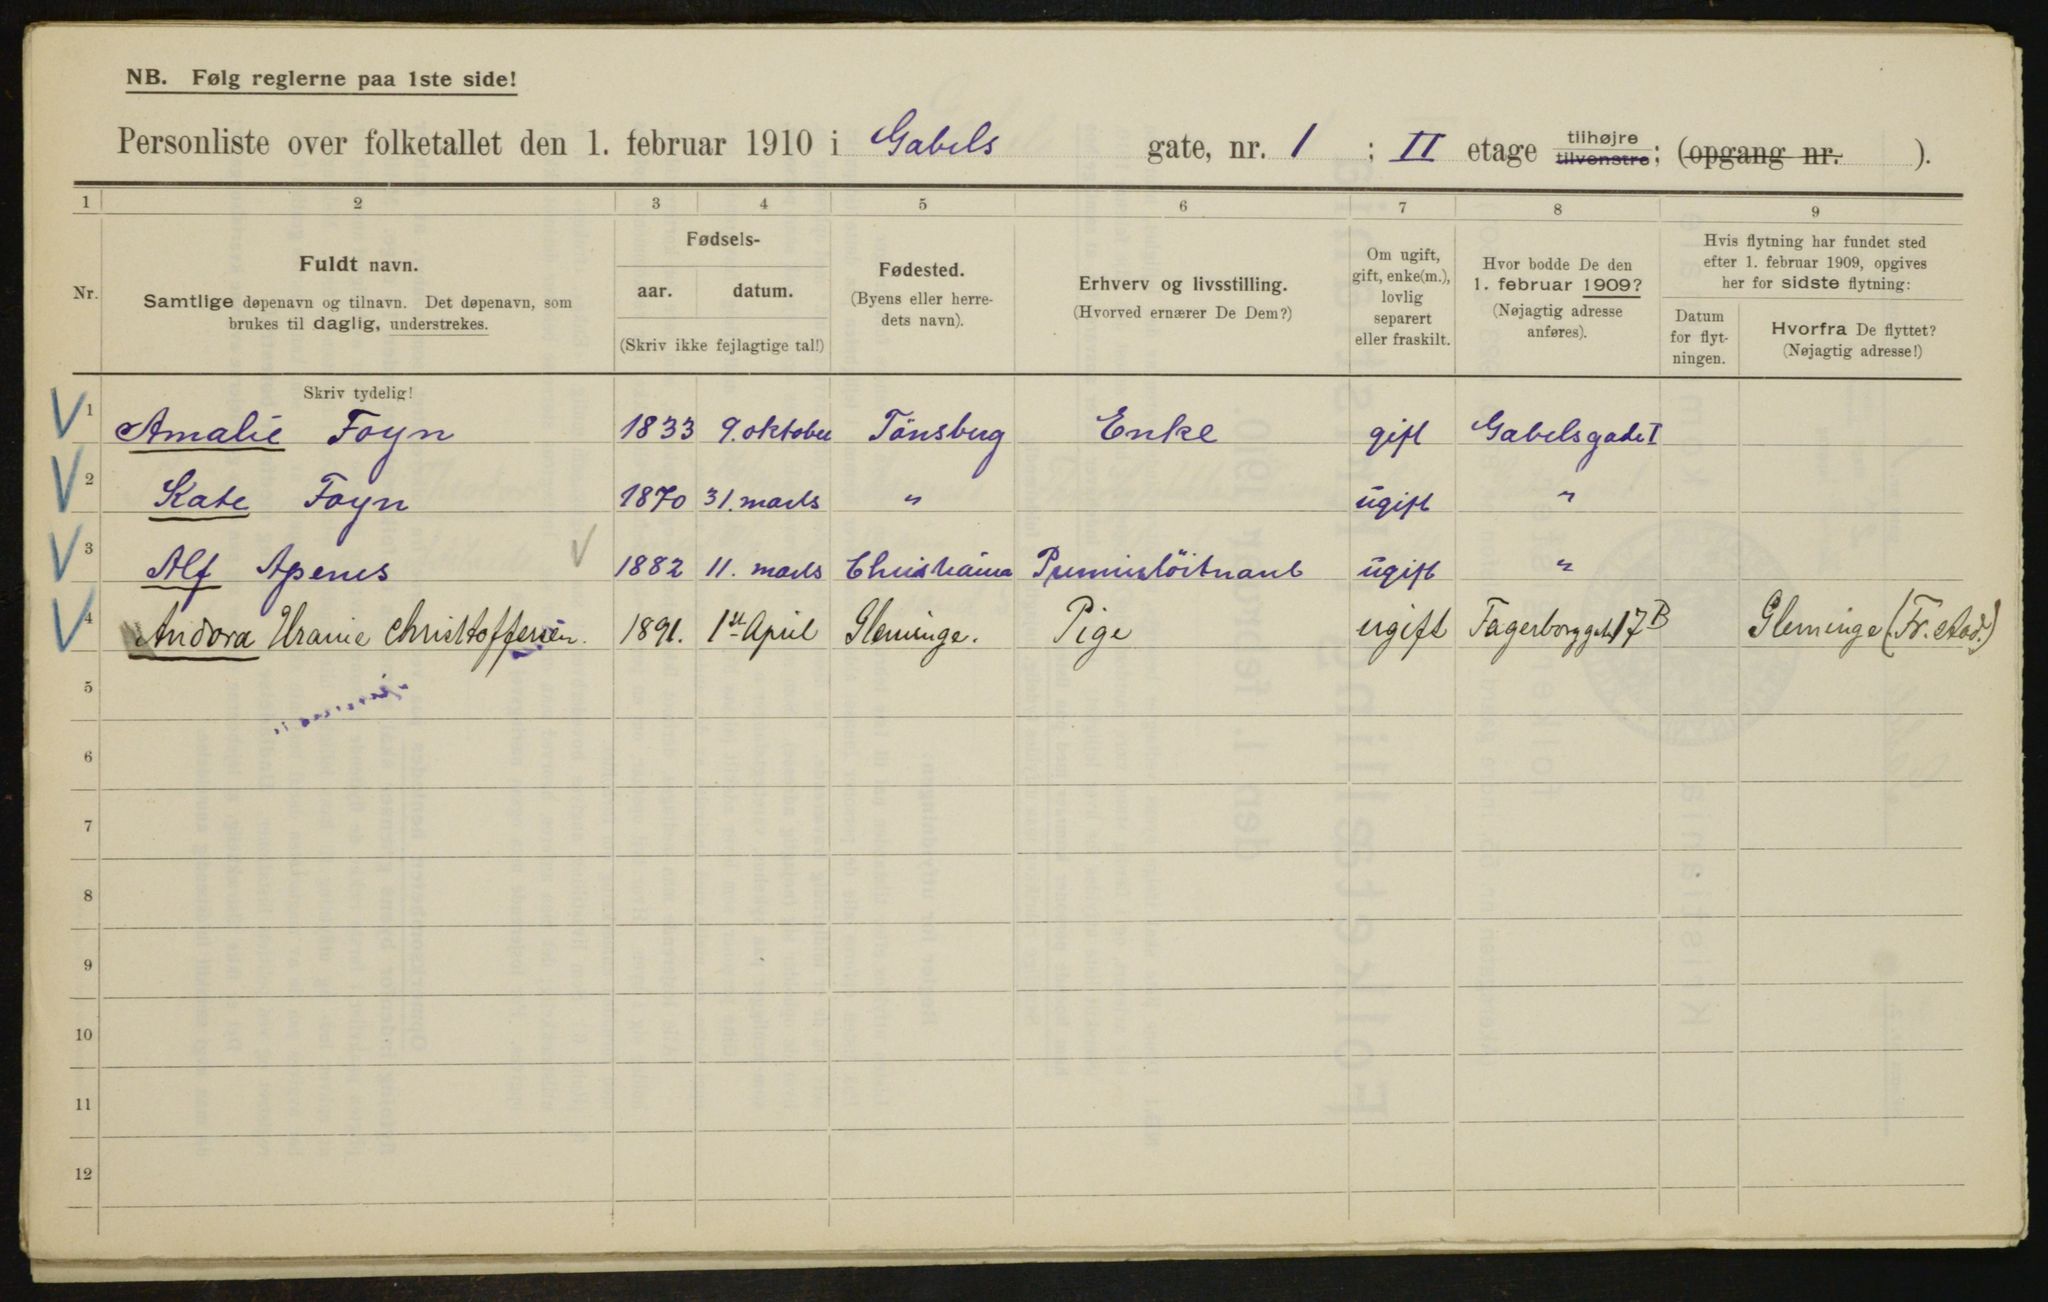 NB. Følg reglerne paa 1ste side!
Personliste over folketallet den 1. februar 1910 i Gabels gate, nr. 1 ; II etage tilhøjre tilvenstre; (opgang nr. ).
1 2 3 4 5 6 7 8 9
Nr.
Fuldt navn.
Samtlige døpenavn og tilnavn. Det døpenavn, som
brukes til daglig, understrekes.
Fødsels-
aar. datum.
(Skriv ikke fejlagtige tal!)
Fødested.
(Byens eller herre-
dets navn).
Erhverv og livsstilling.
(Hvorved ernærer De Dem?)
Om ugift,
gift, enke(m.),
lovlig
separert
eller fraskilt.
Hvor bodde De den
1. februar 1909?
(Nøjagtig adresse
anføres).
Hvis flytning har fundet sted
efter 1. februar 1909, opgives
her for sidste flytning:
Datum
for flyt-
ningen.
Hvorfra De flyttet?
(Nøjagtig adresse!)
Skriv tydelig!
1 Amalie Foyn 1833 9. oktober Tönsberg Enke gift Gabelsgade I
2 Kate Foyn 1870 31. marts " ugift "
3 Alf Apenes 1882 11. marts Christiania Premierlöitnant ugift "
4 Andora Uranie Christoffersen. 1891. 1st April Gleminge. Pige ugift Fagerborggt. 17B Gleminge (Fr.stad.)
5
6
7
8
9
10
11
12